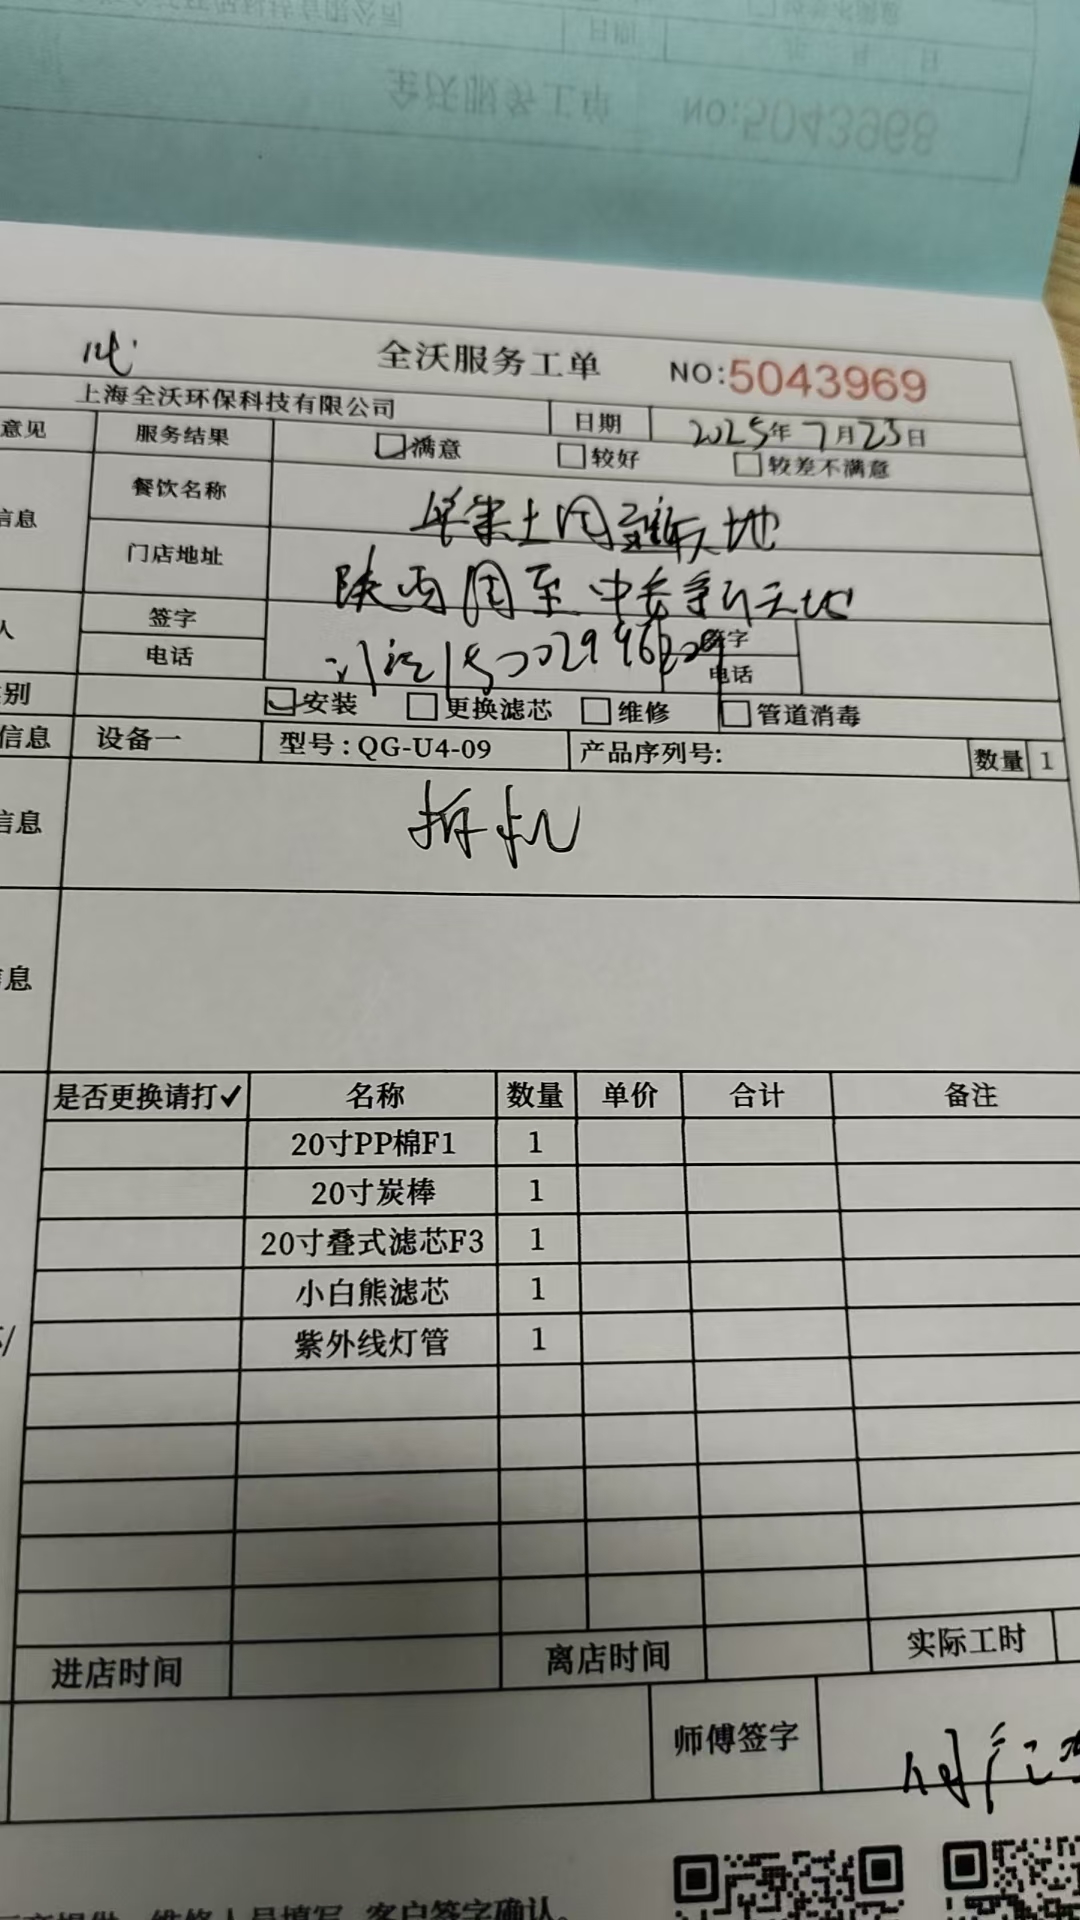 全沃服务工单 NO:5043968
全沃服务工单 NO:5043969
上海全沃环保科技有限公司 日期 2025年7月23日
意见 服务结果 满意 较好 较差不满意
信息 餐饮名称
门店地址 陕西周至中 新天地
人 签字 签字
电话 电话
别 安装 更换滤芯 维修 管道消毒
信息 设备一 型号:QG-U4-09 产品序列号: 数量 1
信息 拆机
信息
是否更换请打✓ 名称 数量 单价 合计 备注
20寸PP棉F1 1
20寸炭棒 1
20寸叠式滤芯F3 1
小白熊滤芯 1
紫外线灯管 1
进店时间 离店时间 实际工时
师傅签字
客户签字确认。